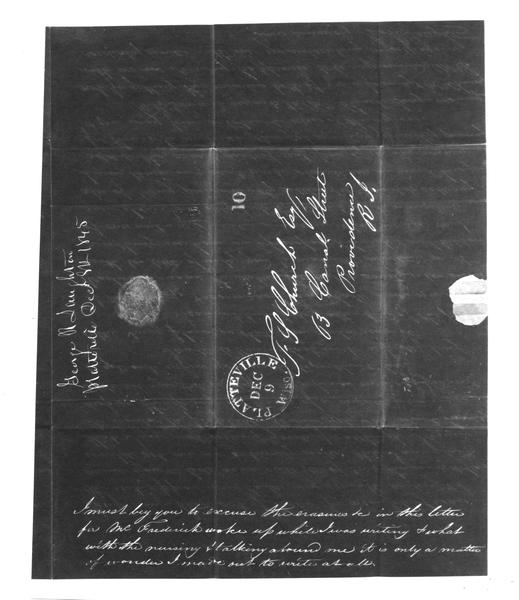 George N Laughton
Platteville Dec 8th 1845
10
PLATTEVILLE
DEC
9
WISC.
T S Church Esq
13 Canal Street
Providence
R I.
I must beg you to excuse the erasures &c in the letter
for Mc Frederick woke up while I was writing & what
with the nursing & talking around me it is only a matter
of wonder I made out to write at all.